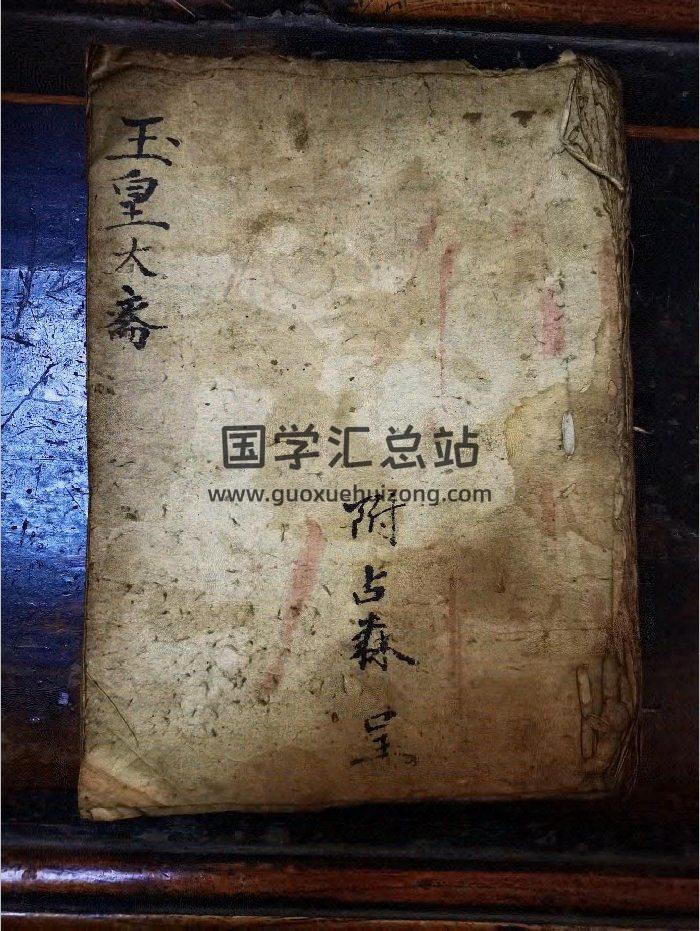 玉皇大斋
国学汇总站
www.guoxuehuizong.com
附占森呈